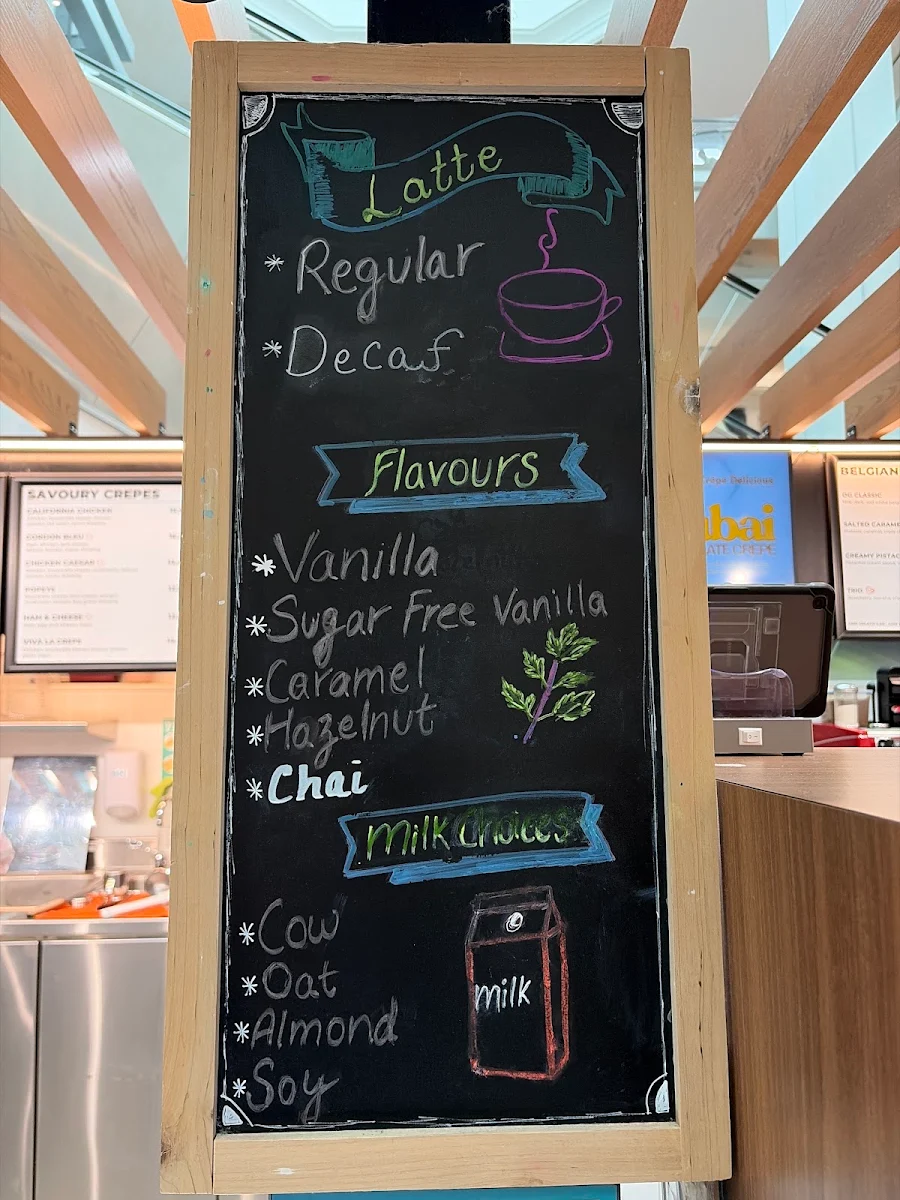 Latte
* Regular
* Decaf
Flavours
* Vanilla
* Sugar Free Vanilla
* Caramel
* Hazelnut
* Chai
Milk Choices
* Cow
* Oat
* Almond
* Soy
milk
SAVOURY CREPES
CALIFORNIA CHICKEN
CORDON BLEU
CHICKEN CAESAR
POPEYE
HAM & CHEESE
VIVA LA CREPE
Crepe Delicious
bai
ATE CREPE
BELGIAN
OG CLASSIC
SALTED CARAME
CREAMY PISTAC
TRIO